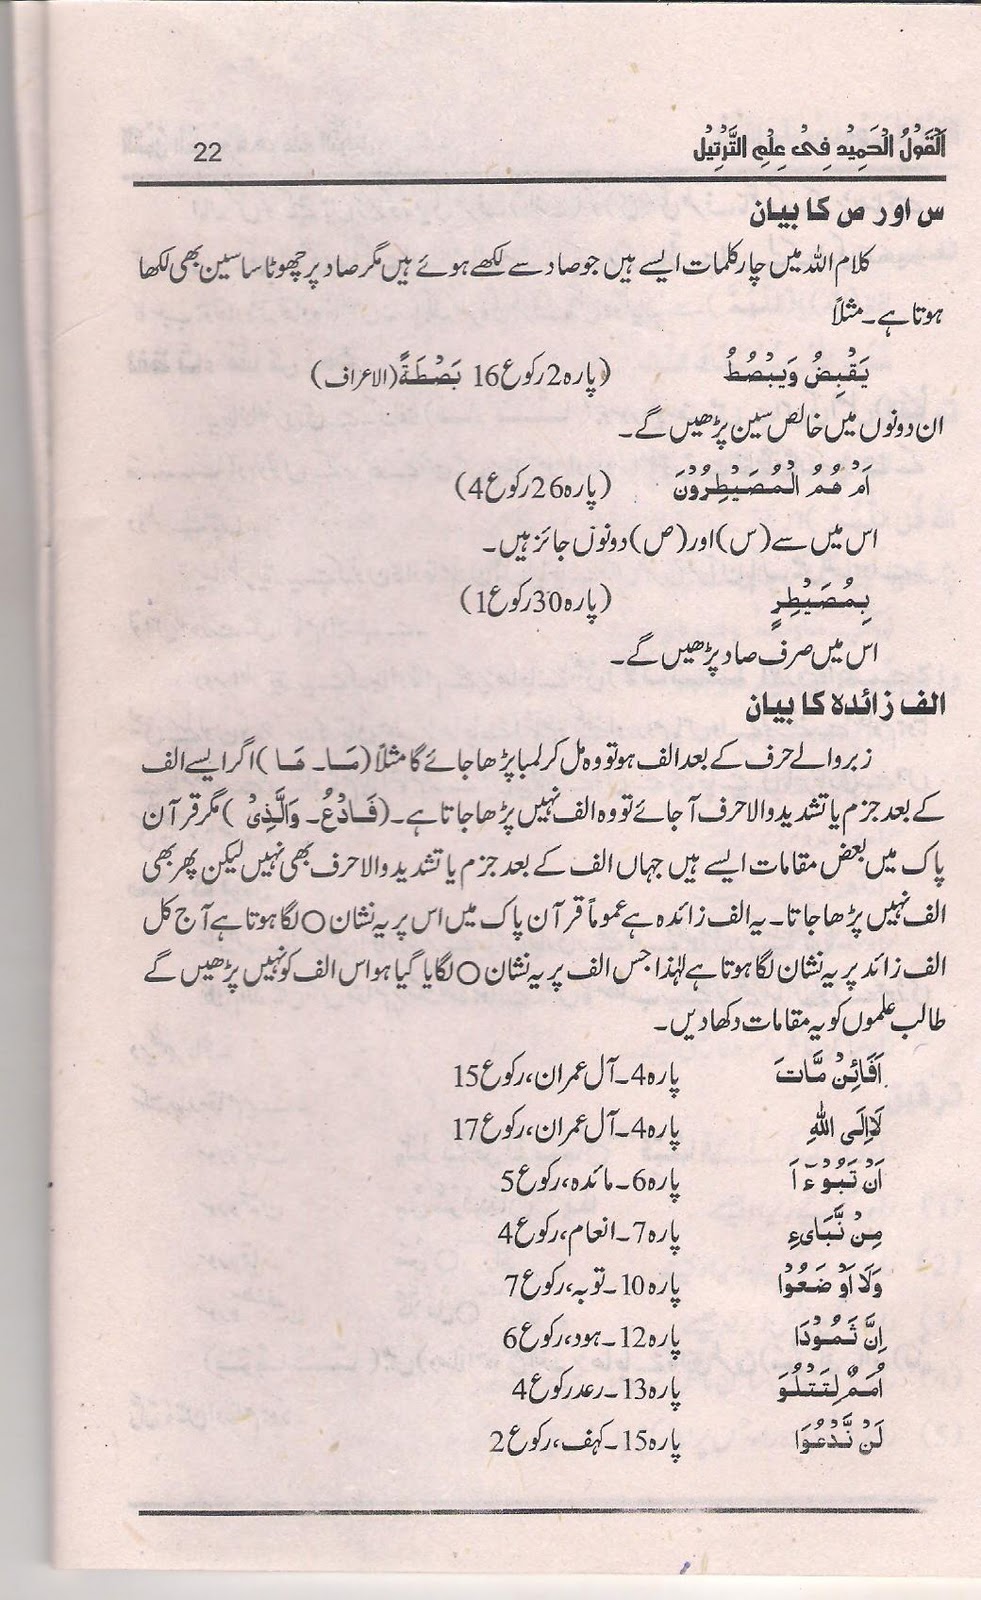 اَلْقَوْلُ الْحَمِيْد فِىْ عِلْمِ التَّرْتِيْل 22
س اور ص کا بیان
کلام اللہ میں چار کلمات ایسے ہیں جو صاد سے لکھے ہوئے ہیں مگر صاد پر چھوٹا سا سین بھی لکھا
ہوتا ہے۔ مثلاً
يَقْبِضُ وَيَبْصُطُ (پارہ 2 رکوع 16 بَصْطَةً (الاعراف)
ان دونوں میں خالص سین پڑھیں گے۔
اَمْ هُمُ الْمُصَيْطِرُوْنَ (پارہ 26 رکوع 4)
اس میں سے (س) اور (ص) دونوں جائز ہیں۔
بِمُصَيْطِرٍ (پارہ 30 رکوع 1)
اس میں صرف صاد پڑھیں گے۔
الف زائدہ کا بیان
زبر والے حرف کے بعد الف ہو تو وہ مل کر لمبا پڑھا جائے گا مثلاً (مَا۔ هَا) اگر ایسے الف
کے بعد جزم یا تشدید والا حرف آ جائے تو وہ الف نہیں پڑھا جاتا ہے۔ (فَادْعُ۔ وَالَّذِىْ) مگر قرآن
پاک میں بعض مقامات ایسے ہیں جہاں الف کے بعد جزم یا تشدید والا حرف بھی نہیں لیکن پھر بھی
الف نہیں پڑھا جاتا۔ یہ الف زائدہ ہے عموماً قرآن پاک میں اس پر یہ نشان ○ لگا ہوتا ہے آج کل
الف زائد پر یہ نشان لگا ہوتا ہے لہٰذا جس الف پر یہ نشان ○ لگایا گیا ہو اس الف کو نہیں پڑھیں گے
طالب علموں کو یہ مقامات دکھا دیں۔
اَفَائِنْ مَّاتَ پارہ 4۔ آل عمران، رکوع 15
لَااِلَى اللهِ پارہ 4۔ آل عمران، رکوع 17
اَنْ تَبُوْٓءَ اَ پارہ 6۔ مائدہ، رکوع 5
مِنْ نَّبَاىءِ پارہ 7۔ انعام، رکوع 4
وَلَا اَوْ ضَعُوْا پارہ 10۔ توبہ، رکوع 7
اِنَّ ثَمُوْدَا پارہ 12۔ ہود، رکوع 6
اُمَمٌ لِتَتْلُوَا پارہ 13۔ رعد رکوع 4
لَنْ نَّدْعُوَا پارہ 15۔ کہف، رکوع 2